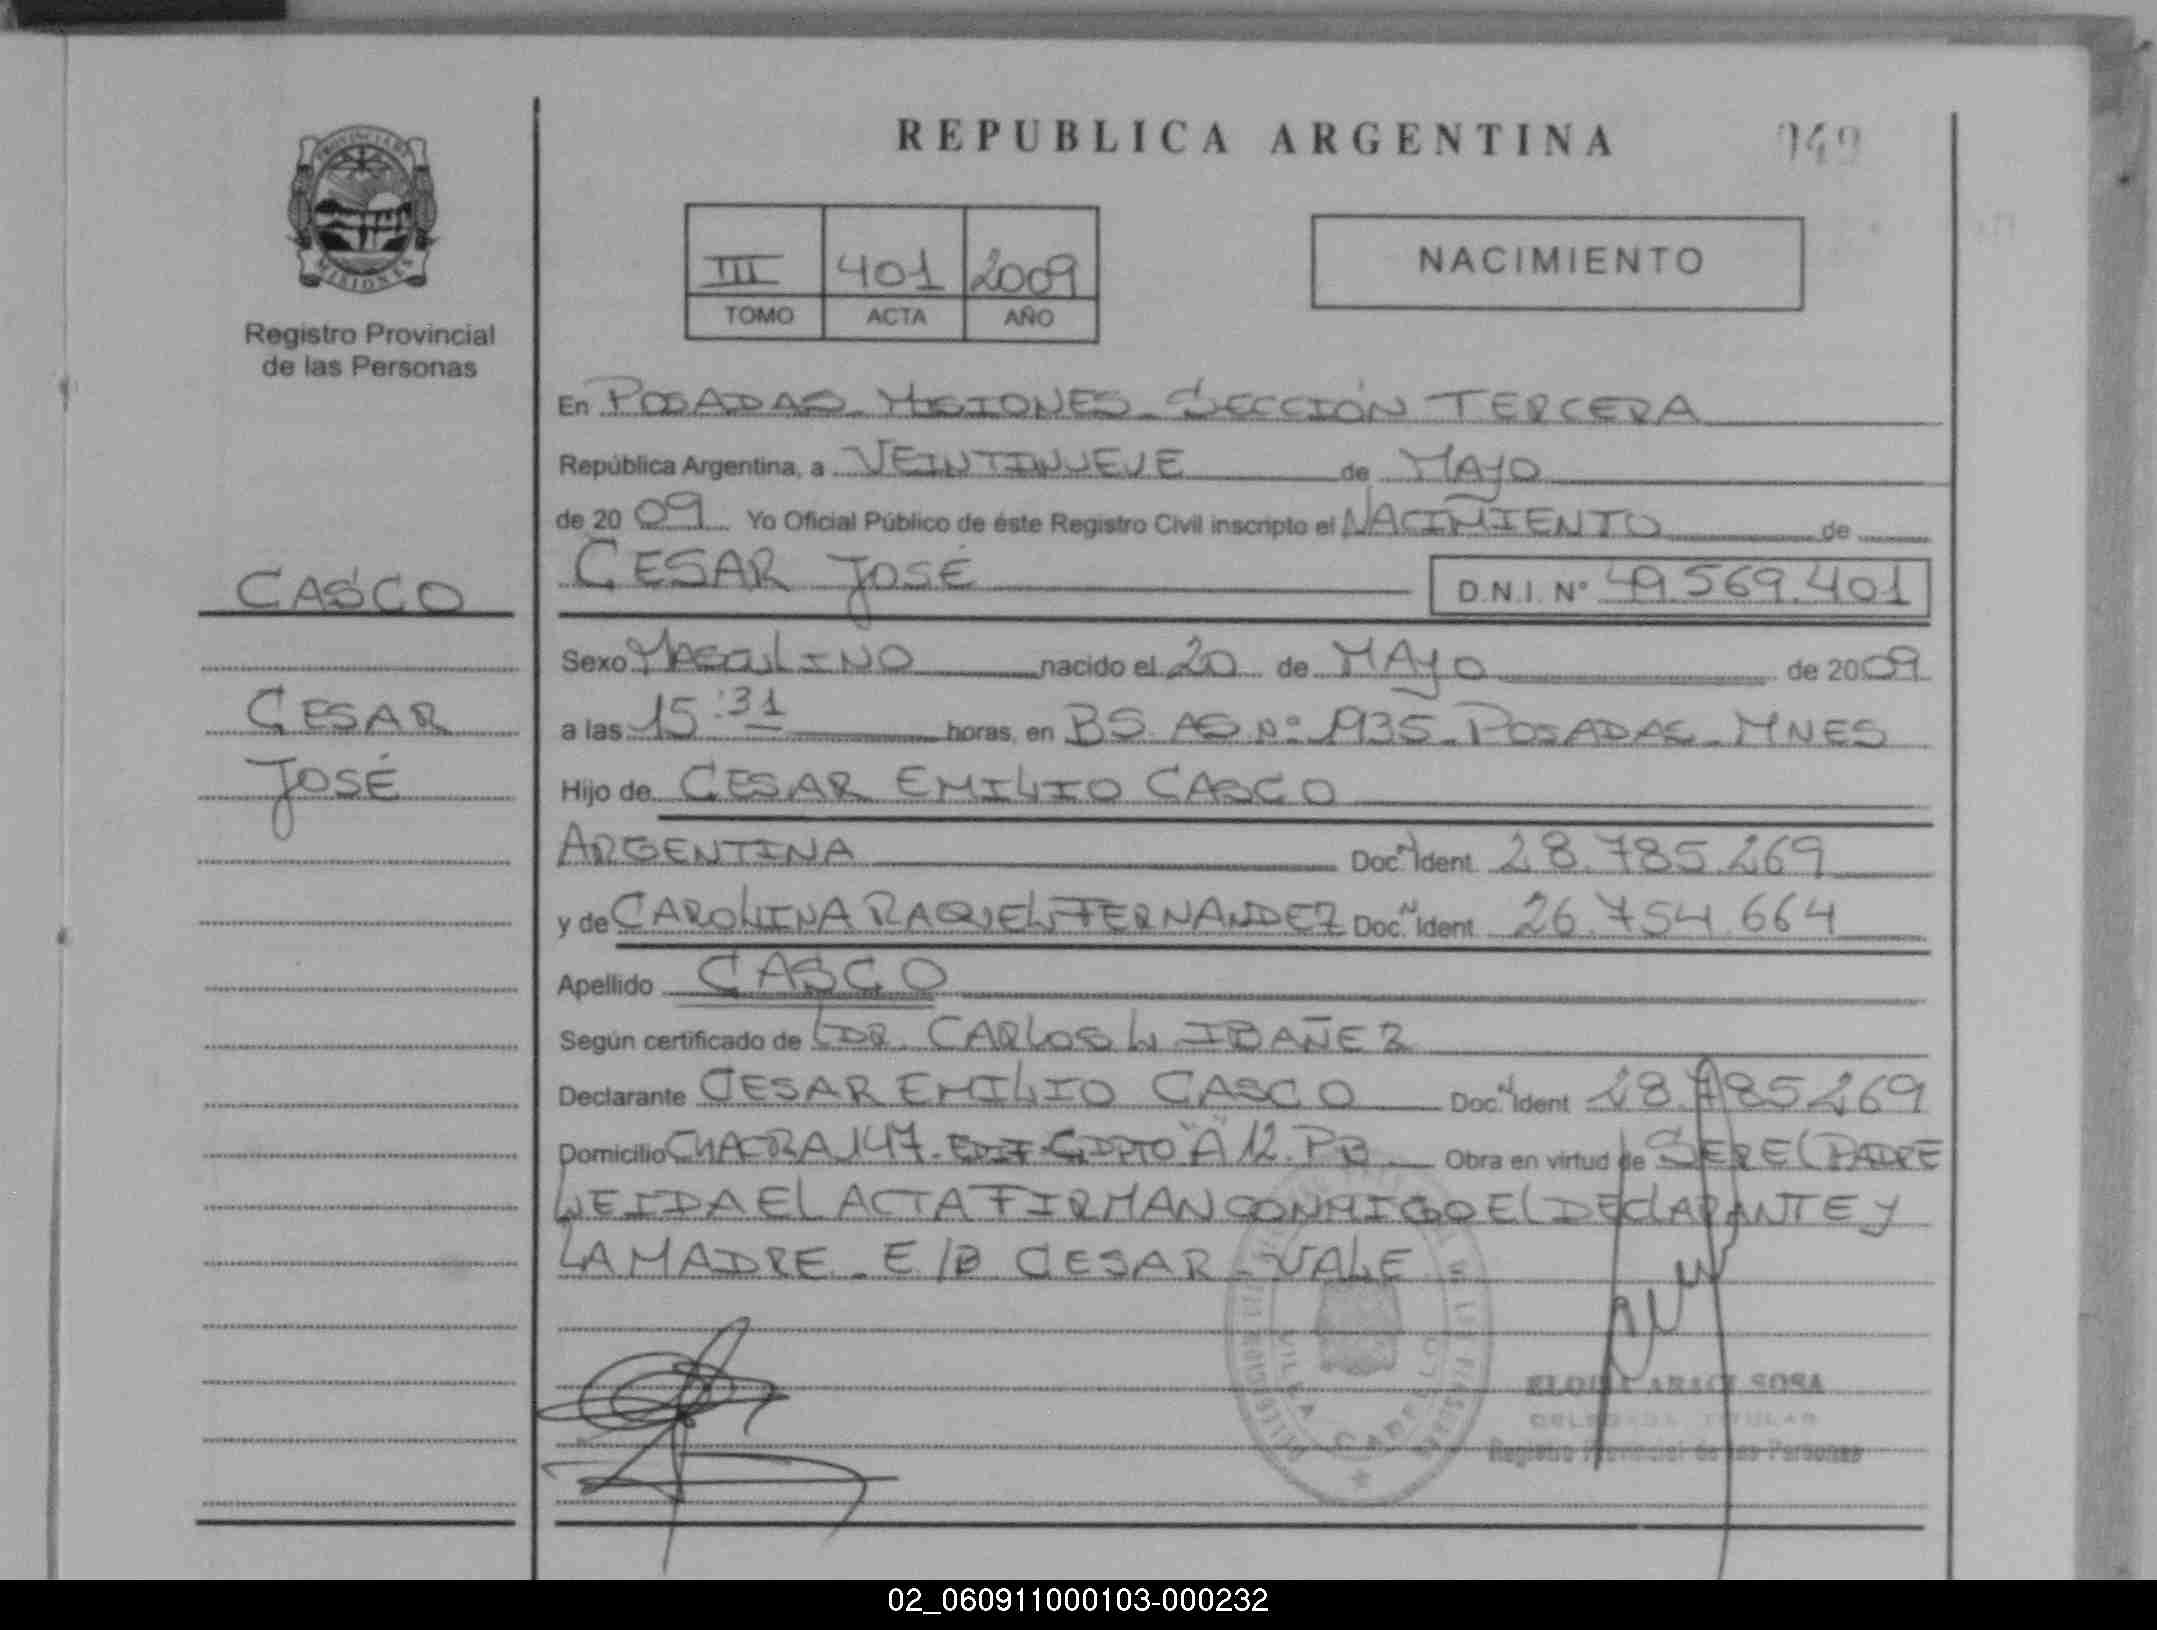 REPUBLICA ARGENTINA
949
PROVINCIA DE
MISIONES
Registro Provincial
de las Personas
III 401 2009
TOMO ACTA AÑO
NACIMIENTO
En POSADAS - MISIONES - SECCIÓN TERCERA
República Argentina, a VEINTINUEVE de MAYO
de 20 09 Yo Oficial Público de éste Registro Civil inscripto el NACIMIENTO de
CESAR JOSÉ D.N.I. N° 49.569.401
CASCO
CESAR
JOSÉ
Sexo MASCULINO nacido el 20 de MAYO de 2009
a las 15:31 horas, en BS. AS. N° 1935 - POSADAS - MNES
Hijo de CESAR EMILIO CASCO
ARGENTINA Doc. N Ident. 28.785.269
y de CAROLINA RAQUEL FERNANDEZ Doc. N Ident. 26.754.664
Apellido CASCO
Según certificado de DR. CARLOS L. IBAÑEZ
Declarante CESAR EMILIO CASCO Doc. N Ident 28.785269
Domicilio CHACRA 147. EDIF. DPTO "A" 12. PB Obra en virtud de SER EL PADRE
LEIDA EL ACTA FIRMAN CONMIGO EL DECLARANTE Y
LA MADRE - E/B CESAR - VALE
VILLA CABELLO
ARACI SOSA
DELEGADA TITULAR
Registro Provincial de las Personas
02_060911000103-000232